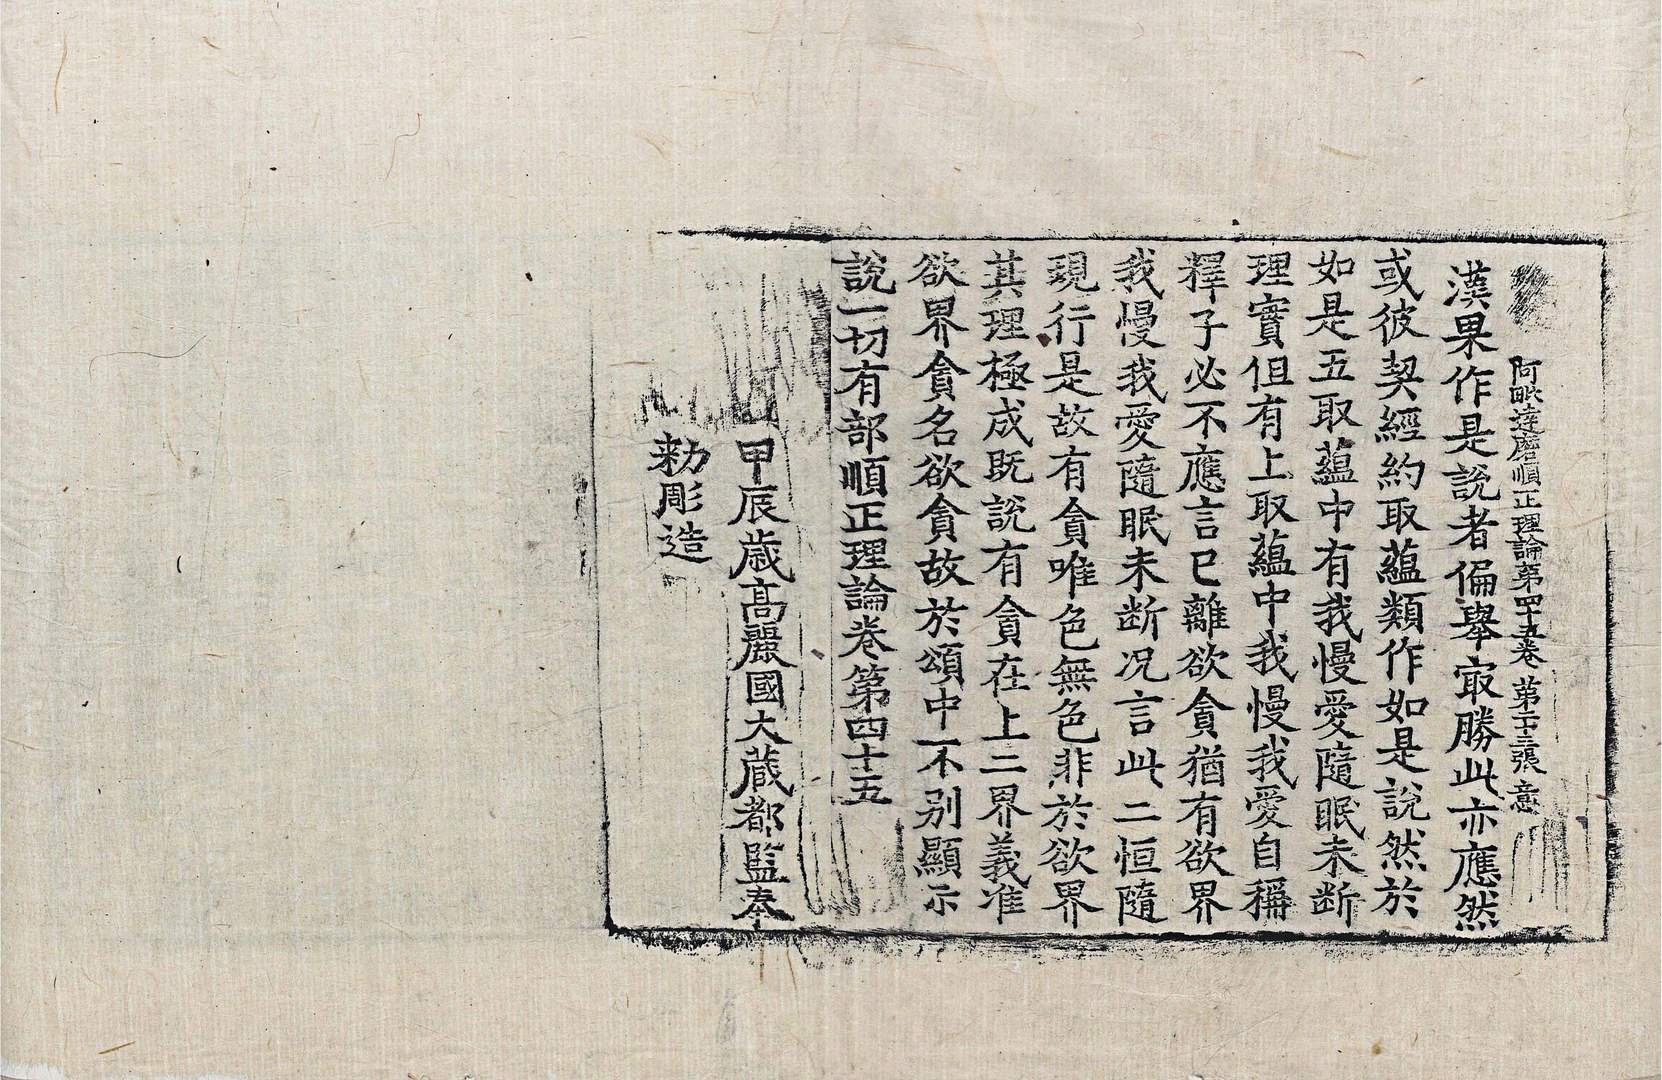 阿毗達磨順正理論第四十五卷 第二十三張 意
漢果作是說者偏擧㝡勝此亦應然
或彼契經約取蘊類作如是說然於
如是五取蘊中有我慢愛隨眠未断
理實但有上取蘊中我慢我愛自稱
釋子必不應言已離欲貪猶有欲界
我慢我愛隨眠未断况言此二恒隨
現行是故有貪唯色無色非於欲界
其理極成既說有貪在上二界義准
欲界貪名欲貪故於頌中不别顯示
說一切有部順正理論卷第四十五
甲辰歳髙麗國大藏都監奉
勑彫造